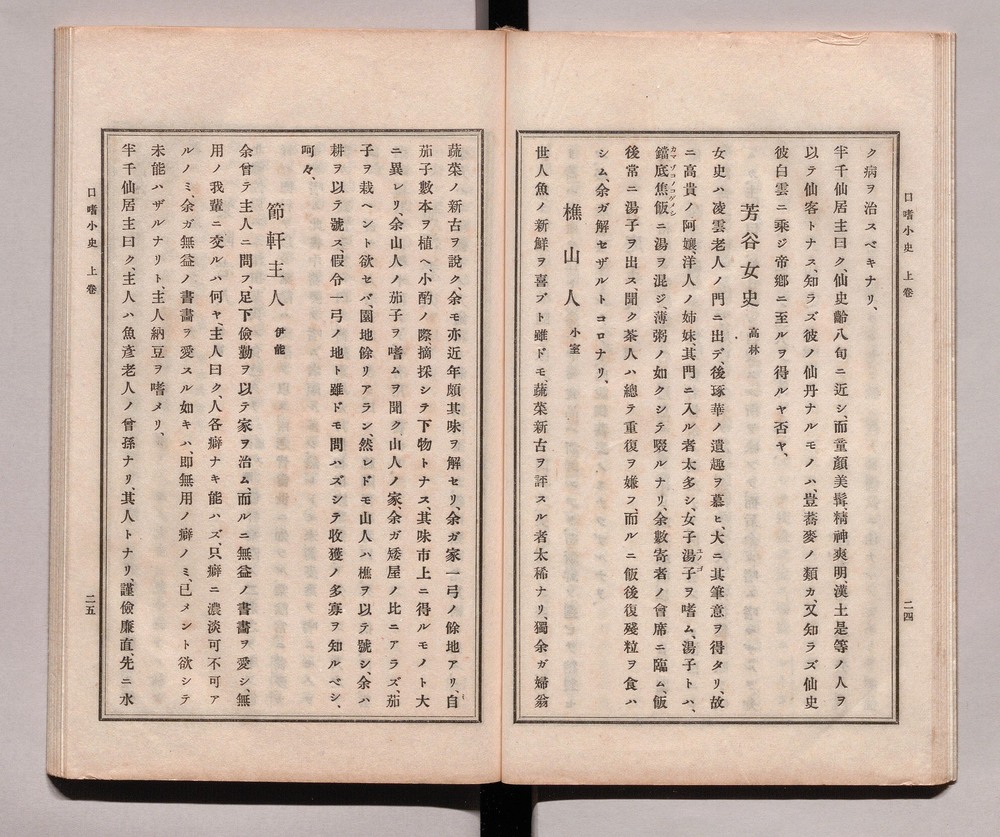 口嗜小史　上卷
二四
ク病ヲ治スベキナリ、
半千仙居主曰ク、仙史齡八旬ニ近シ、而童顏美髯、精神爽明、漢土是等ノ人ヲ
以テ仙客トナス、知ラズ彼ノ仙丹ナルモノハ、豈蕎麥ノ類カ、又知ラズ仙史
彼白雲ニ乘ジ帝鄉ニ至ルヲ得ルヤ否ヤ、
芳谷女史　高林
女史ハ凌雲老人ノ門ニ出デ、後琢華ノ遺趣ヲ慕ヒ、大ニ其筆意ヲ得タリ、故
ニ高貴ノ阿孃洋人ノ姉妹、其門ニ入ル者太多シ、女子湯子ヲ嗜ム、湯子トハ、
鐺底焦飯ニ湯ヲ混ジ、薄粥ノ如クシテ啜ルナリ、余數寄者ノ會席ニ臨ム、飯
後常ニ湯子ヲ出ス、聞ク茶人ハ總テ重復ヲ嫌フ、而ルニ飯後復殘粒ヲ食ハ
シム、余ガ解セザルトコロナリ、
樵山人　小室
世人魚ノ新鮮ヲ喜ブト雖ドモ、蔬菜新古ヲ評スル者太稀ナリ、獨余ガ婦翁
蔬菜ノ新古ヲ說ク、余モ亦近年頗其味ヲ解セリ、余ガ家一弓ノ餘地アリ、自
茄子數本ヲ植ヘ、小酌ノ際摘採シテ下物トナス、其味市上ニ得ルモノト大
ニ異レリ、余山人ノ茄子ヲ嗜ムヲ聞ク、山人ノ家、余ガ矮屋ノ比ニアラズ、茄
子ヲ栽ヘント欲セバ、園地餘リアラン、然レドモ山人ハ樵ヲ以テ號シ、余ハ
耕ヲ以テ號ス、假令一弓ノ地ト雖ドモ問ハズシテ收獲ノ多寡ヲ知ルベシ、
呵々、
節軒主人　伊能
余曾テ主人ニ問フ、足下儉勤ヲ以テ家ヲ治ム、而ルニ無益ノ書畫ヲ愛シ、無
用ノ我輩ニ交ルハ何ヤ、主人曰ク、人各癖ナキ能ハズ、只癖ニ濃淡可不可ア
ルノミ、余ガ無益ノ書畫ヲ愛スル如キハ、卽無用ノ癖ノミ、已メント欲シテ
未能ハザルナリト、主人納豆ヲ嗜メリ、
半千仙居主曰ク、主人ハ魚彥老人ノ曾孫ナリ、其人トナリ、謹儉廉直、先ニ水
口嗜小史　上卷
二五